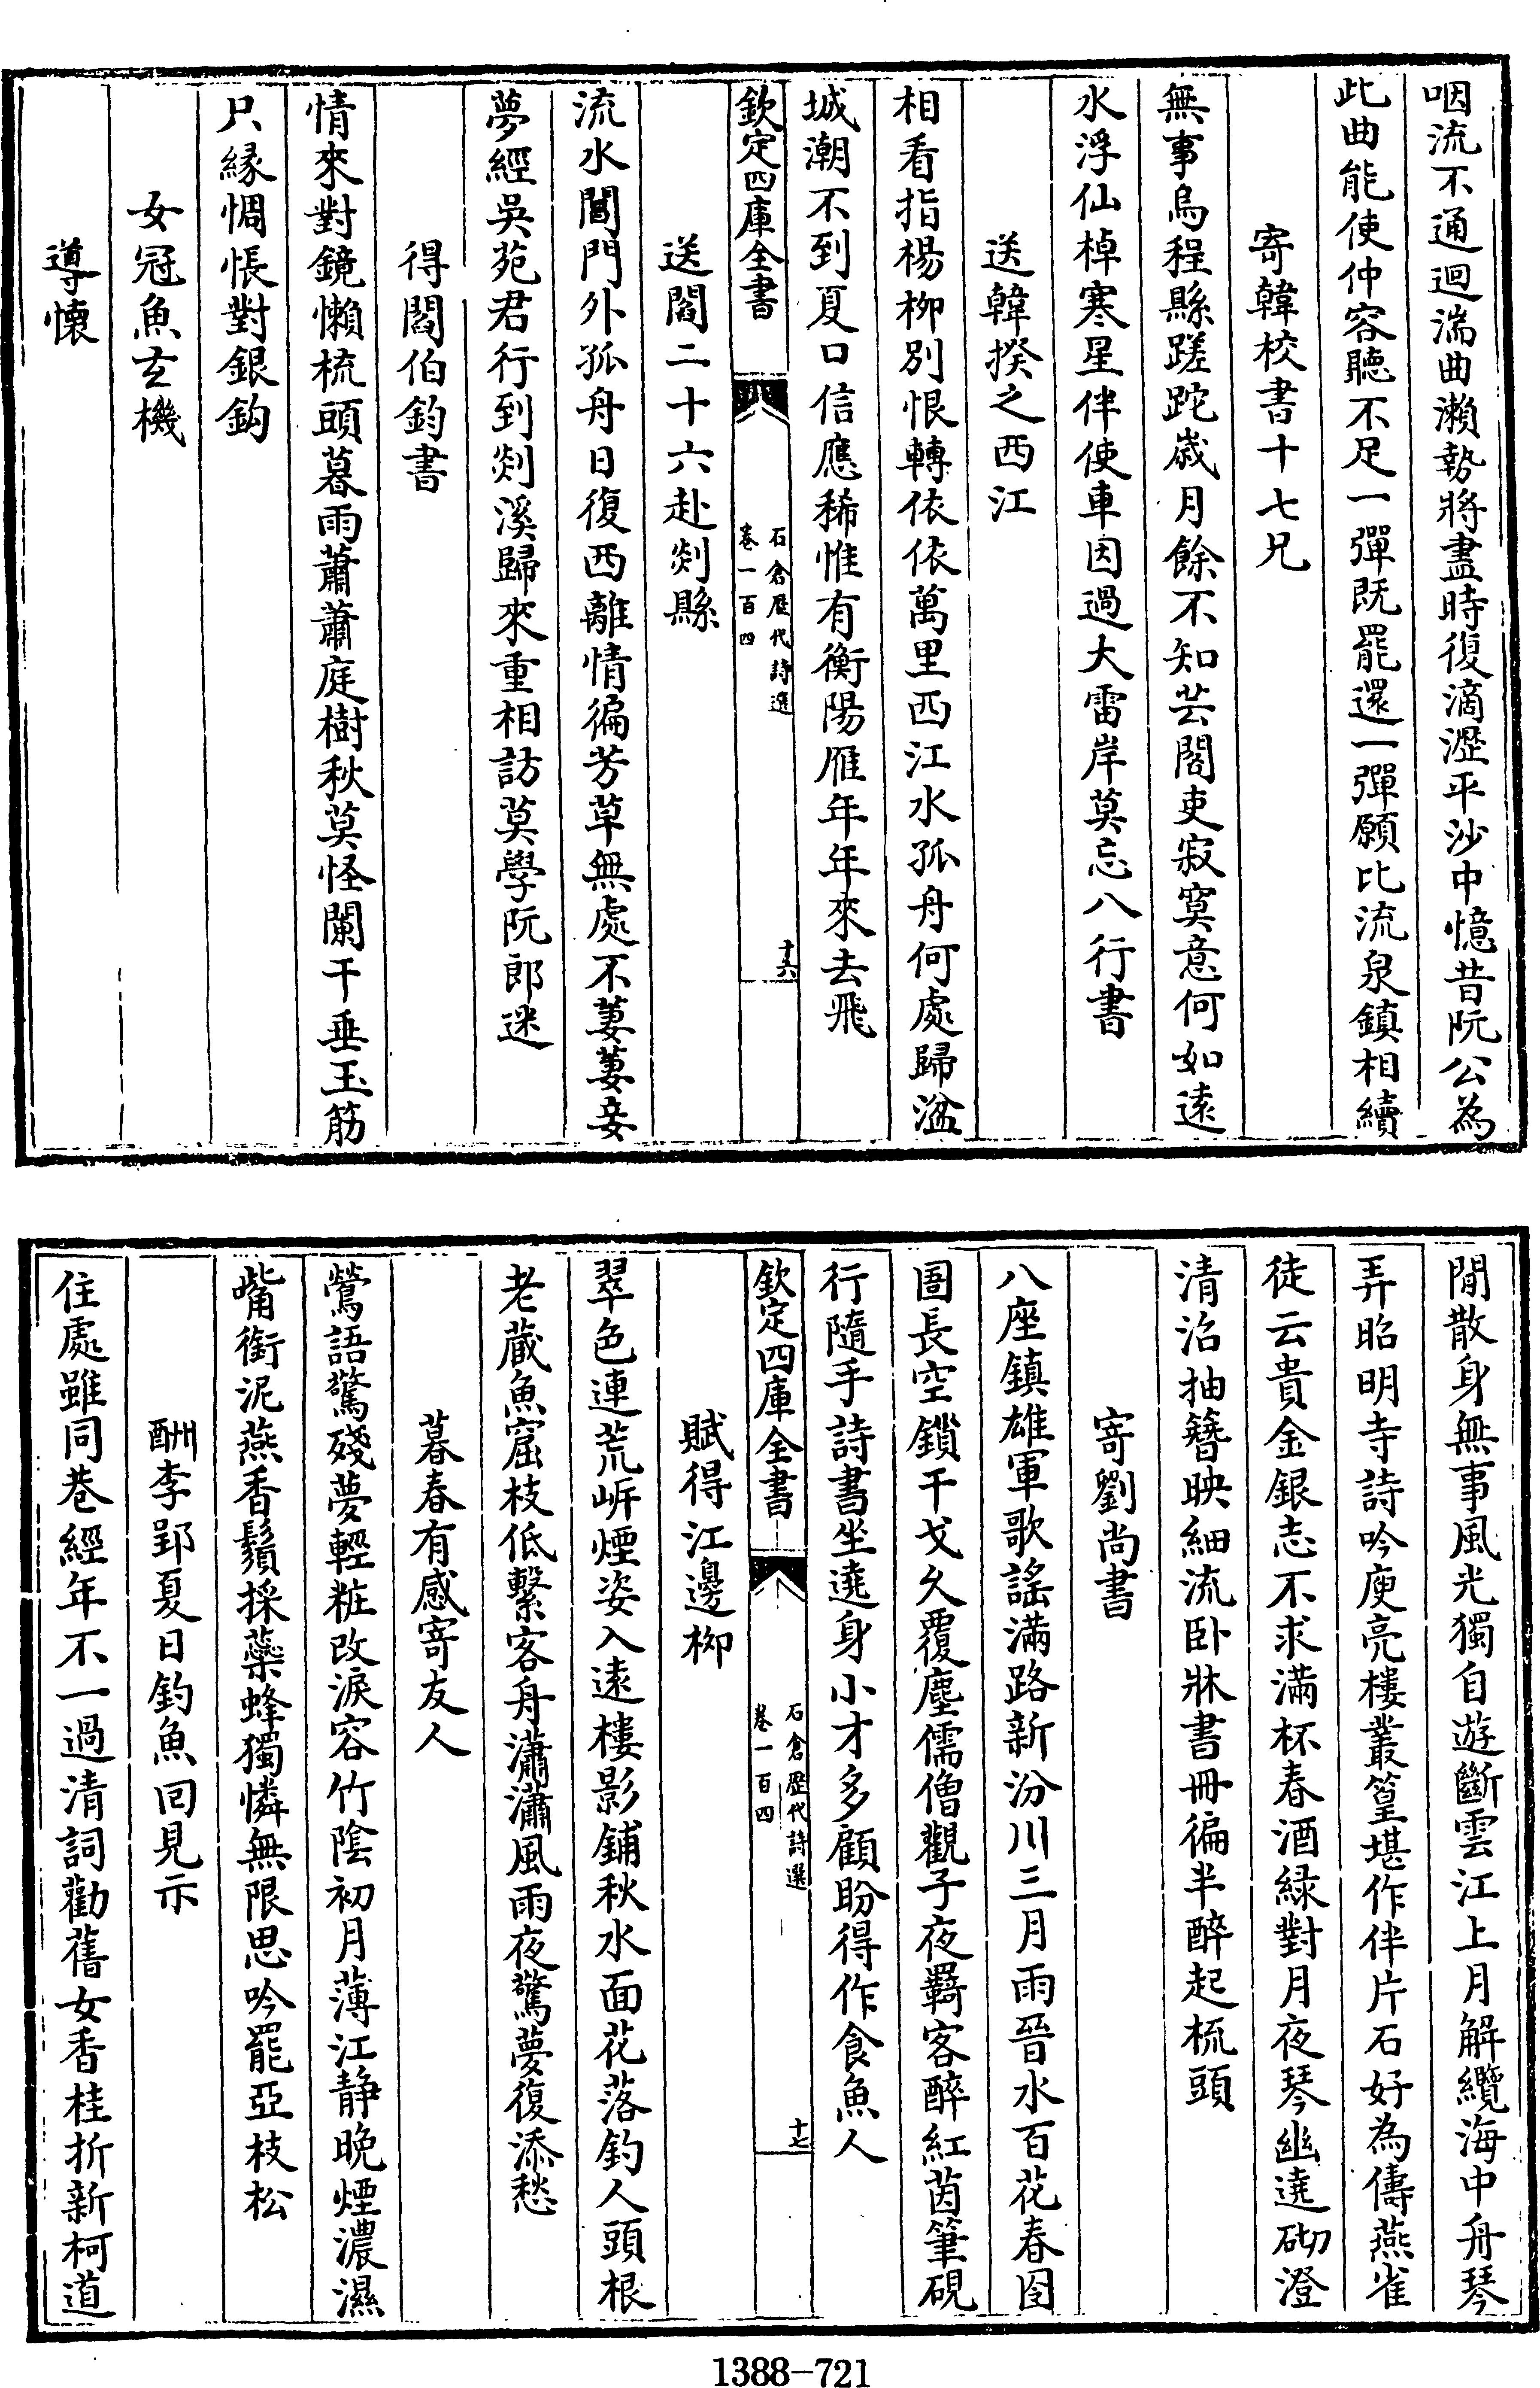 咽流不通迴湍曲瀨勢將盡時復滴瀝平沙中憶昔阮公為
此曲能使仲容聽不足一彈既罷還一彈願比流泉鎮相續
寄韓校書十七兄
無事烏程縣蹉跎歲月餘不知芸閣吏寂寞意何如遠
水浮仙棹寒星伴使車因過大雷岸莫忘八行書
送韓揆之西江
相看指楊栁別恨轉依依萬里西江水孤舟何處歸湓
城潮不到夏口信應稀惟有衡陽雁年年來去飛
欽定四庫全書
石倉歷代詩選
卷一百四
十六
送閻二十六赴剡縣
流水閶門外孤舟日復西離情徧芳草無處不萋萋妾
夢經吳苑君行到剡溪歸來重相訪莫學阮郎迷
得閻伯鈞書
情來對鏡懶梳頭暮雨蕭蕭庭樹秋莫怪闌干垂玉筯
只縁惆悵對銀鈎
女冠魚玄機
導懷
閒散身無事風光獨自遊斷雲江上月解纜海中舟琴
弄昭明寺詩吟庾亮樓叢篁堪作伴片石好為儔燕雀
徒云貴金銀志不求滿杯春酒緑對月夜琴幽遶砌澄
清沼抽簪映細流卧牀書冊徧半醉起梳頭
寄劉尚書
八座鎮雄軍歌謠滿路新汾川三月雨晉水百花春囹
圄長空鎖干戈久覆塵儒僧觀子夜羇客醉紅茵筆硯
行隨手詩書坐遶身小才多顧盼得作食魚人
欽定四庫全書
石倉歷代詩選
卷一百四
十七
賦得江邊栁
翠色連荒㟁煙姿入遠樓影鋪秋水面花落釣人頭根
老藏魚窟枝低繫客舟瀟瀟風雨夜驚夢復添愁
暮春有感寄友人
鶯語驚殘夢輕粧改淚容竹陰初月薄江静晚煙濃濕
嘴銜泥燕香鬚採蘂蜂獨憐無限思吟罷亞枝松
酬李郢夏日釣魚回見示
住處雖同巷經年不一過清詞勸舊女香桂折新柯道
1388-721